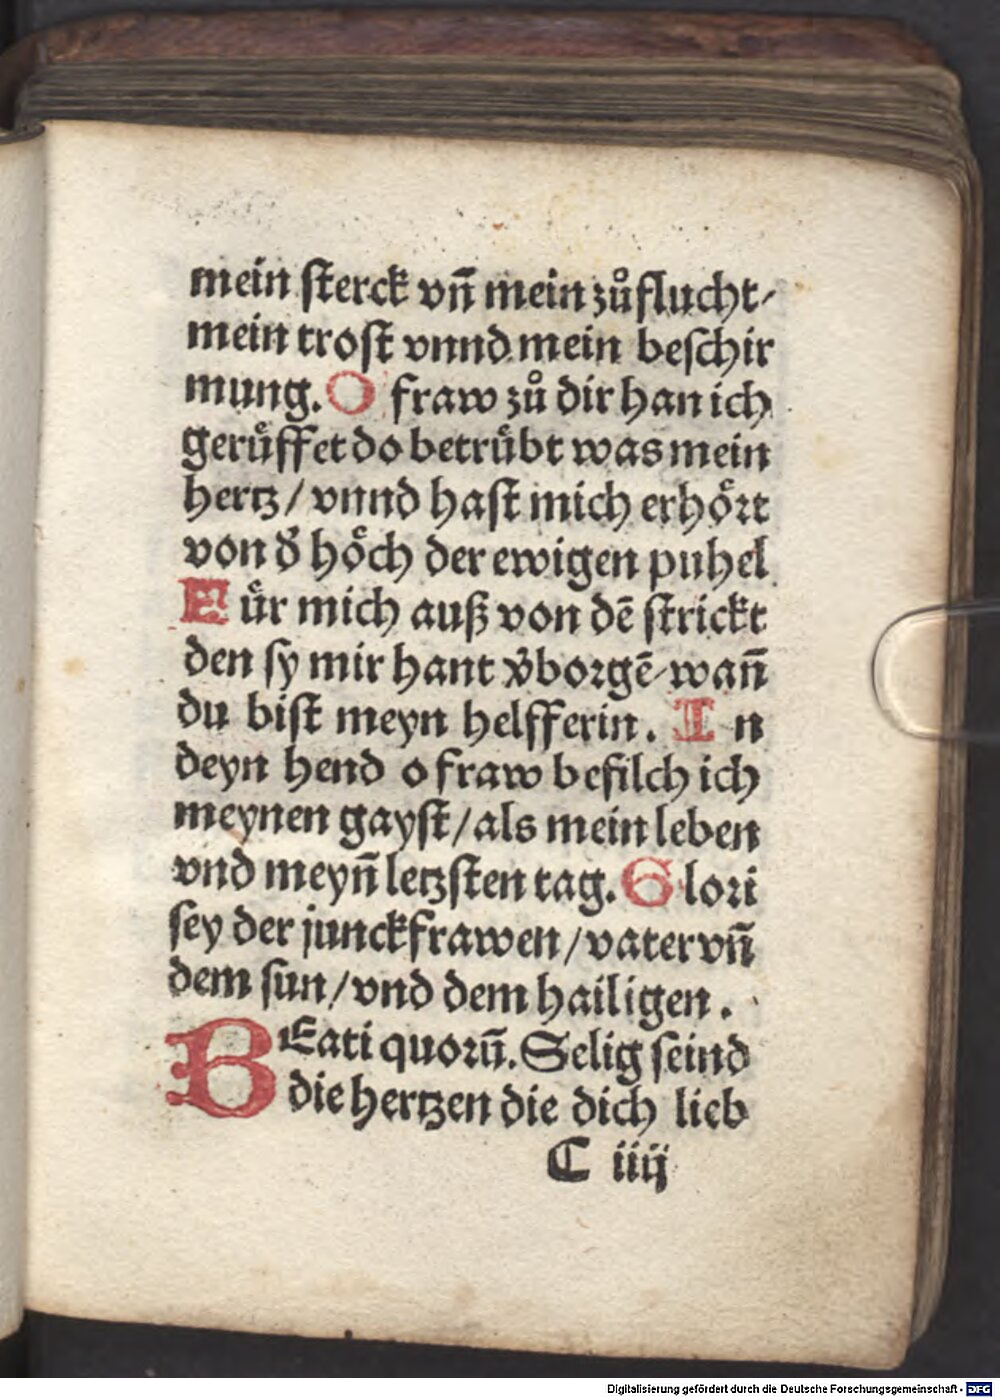 mein sterck vnñ mein zůflucht/
mein trost vnnd mein beschir
mung. O fraw zů dir han ich
gerůffet do betrůbt was mein
hertz / vnnd hast mich erhört
von d̉ höch der ewigen puhel
Für mich auß von dē strickt
den sy mir hant v̉borgē/wañ
du bist meyn helfferin. In
deyn hend o fraw befilch ich
meynen gayst/als mein leben
vnd meyñ letzsten tag. Glori
sey der junckfrawen/vater vñ
dem sun/vnd dem hailigen.
BEati quorū. Selig seind
die hertzen die dich lieb
C iiij
Digitalisierung gefördert durch die Deutsche Forschungsgemeinschaft - DFG